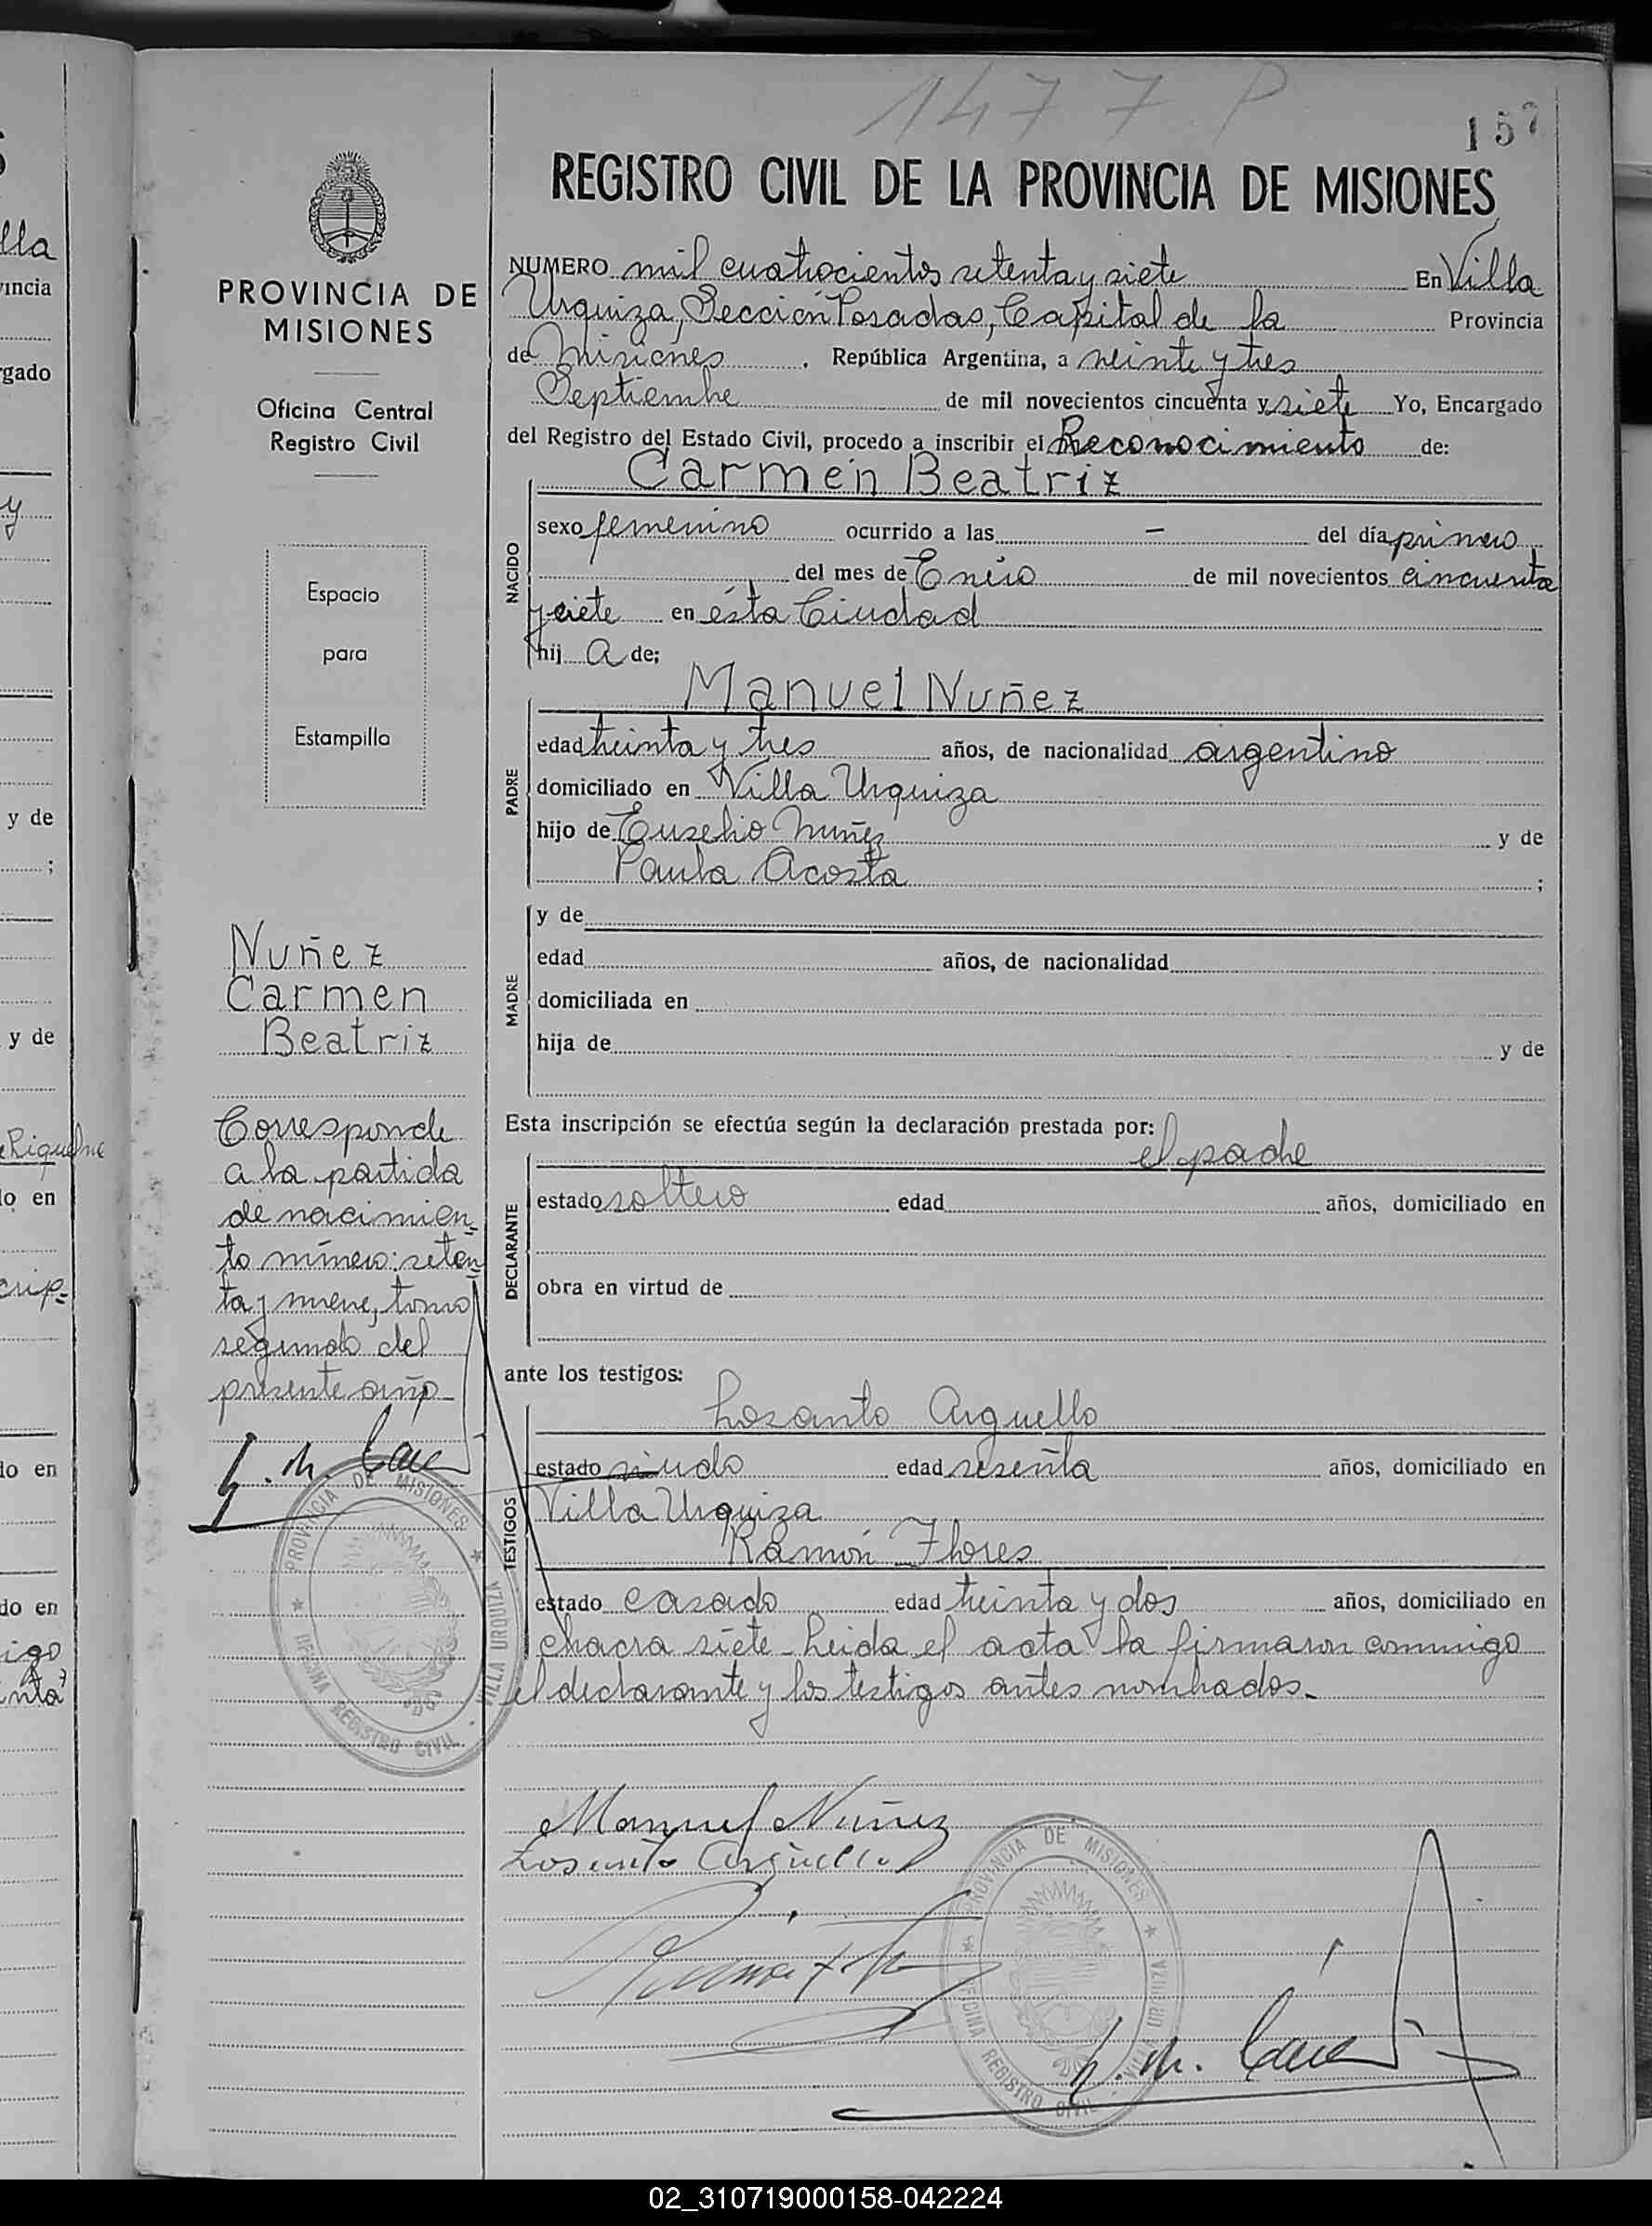 1477 P
157
REGISTRO CIVIL DE LA PROVINCIA DE MISIONES
PROVINCIA DE
MISIONES
Oficina Central
Registro Civil
Espacio
para
Estampilla
Nuñez
Carmen
Beatriz
Corresponde
a la partida
de nacimien
to número: seten
ta y nueve, tomo
segundo del
presente año
PROVINCIA DE MISIONES
OFICINA REGISTRO CIVIL
VILLA URQUIZA
NUMERO mil cuatrocientos setenta y siete En Villa
Urquiza, Sección Posadas, Capital de la Provincia
de Misiones. República Argentina, a veinte y tres
Septiembre de mil novecientos cincuenta y siete Yo, Encargado
del Registro del Estado Civil, procedo a inscribir el Reconocimiento de:
Carmen Beatriz
NACIDO
sexo femenino ocurrido a las - del día primero
del mes de Enero de mil novecientos cincuenta
y siete en ésta Ciudad
hij a de;
Manuel Nuñez
PADRE
edad treinta y tres años, de nacionalidad argentino
domiciliado en Villa Urquiza
hijo de Eusebio Nuñez y de
Paula Acosta ;
MADRE
y de
edad años, de nacionalidad
domiciliada en
hija de y de
Esta inscripción se efectúa según la declaración prestada por:
el padre
DECLARANTE
estado soltero edad años, domiciliado en
obra en virtud de
ante los testigos:
Losanto Arguello
TESTIGOS
estado viudo edad sesenta años, domiciliado en
Villa Urquiza
Ramón Flores
estado casado edad treinta y dos años, domiciliado en
chacra siete - Leida el acta la firmaron conmigo
el declarante y los testigos antes nombrados.-
Manuel Nuñez
Losanto Argüello
PROVINCIA DE MISIONES
OFICINA REGISTRO CIVIL
VILLA URQUIZA
lla
incia
gado
y
y de
;
y de
Riquelme
o en
crip-
do en
do en
igo
nta
02_310719000158-042224